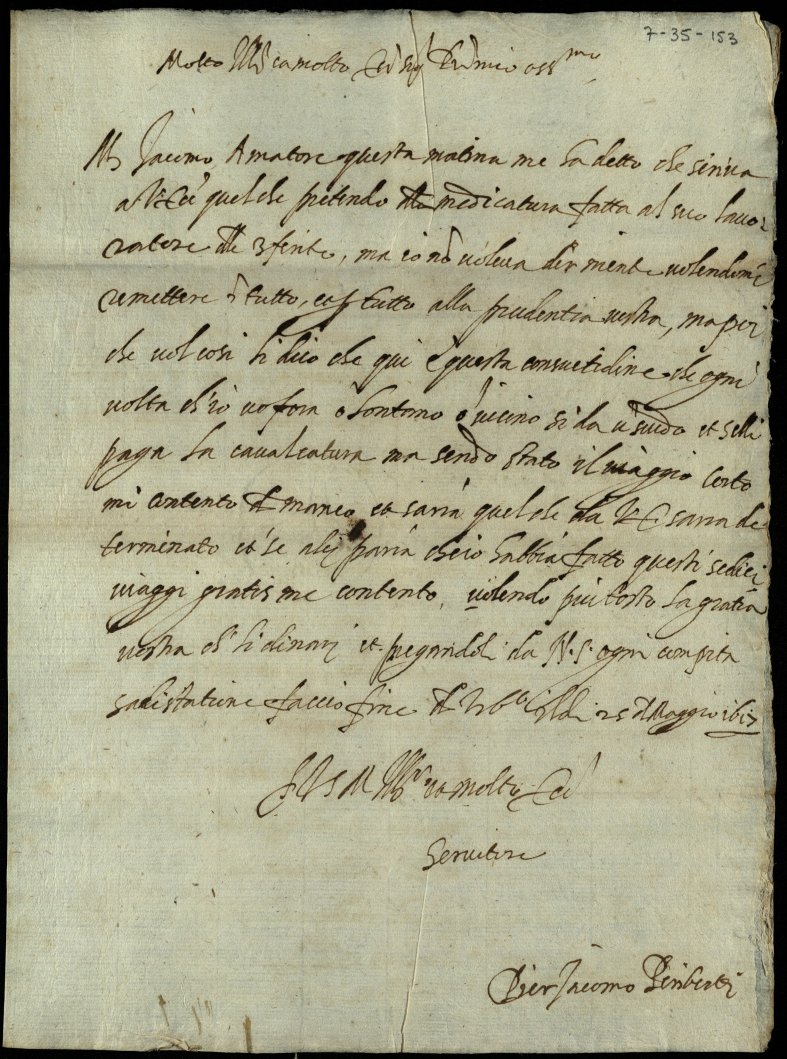 7-35-153
Molto Ill. et molto Ecc. Sig. P.rõ mio oss.mo
M. Jacomo Amatore questa matina me ha detto che scriva
a V. Ecc. quel che pretendo della medicatura fatta al suo lavo-
ratore delle 3 ferite, ma io nõ voleva dir niente volendome
remettere ĩ tutto, et p tutto alla prudentia vostra, ma poi
che vol cosi li dico che qui è questa consuetudine che ogni
volta ch'io vo fora o lontano o vicino si da ũ scudo et selli
paga la cavalcatura ma sendo stato il viaggio corto
mi contento di manco et sarrà quel che da V. E. sarra de-
terminato et se a lei parrà che io habbia fatto questi sedici
viaggi gratis me contento, volendo piu tosto la gratia
vostra ch' li dinari et pregandoli da N. S. ogni compita
satisfatione faccio fine di Urb.o il dì 25 di Maggio 1617
Di V. S. M. Ill.re et molto Ecc.
Servitore
Pier Jacomo Periberti